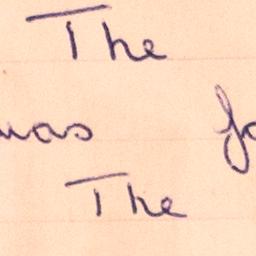 The
was
The